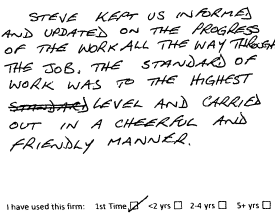 STEVE KEPT US INFORMED
AND UPDATED ON THE PROGRESS
OF THE WORK ALL THE WAY THROUGH
THE JOB. THE STANDARD OF
WORK WAS TO THE HIGHEST
STANDARD LEVEL AND CARRIED
OUT IN A CHEERFUL AND
FRIENDLY MANNER.
I have used this firm: 1st Time ☑ <2 yrs ☐ 2-4 yrs ☐ 5+ yrs ☐